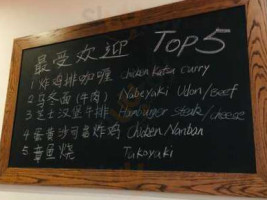 最受欢迎 TOP 5
1 炸鸡排咖喱 Chicken Katsu Curry
2 乌冬面(牛肉) Nabeyaki Udon/Beef
3 芝士汉堡牛排 Hamburger Steak/cheese
4 蛋黄沙司酱炸鸡 Chicken Nanban
5 章鱼烧 Takoyuki